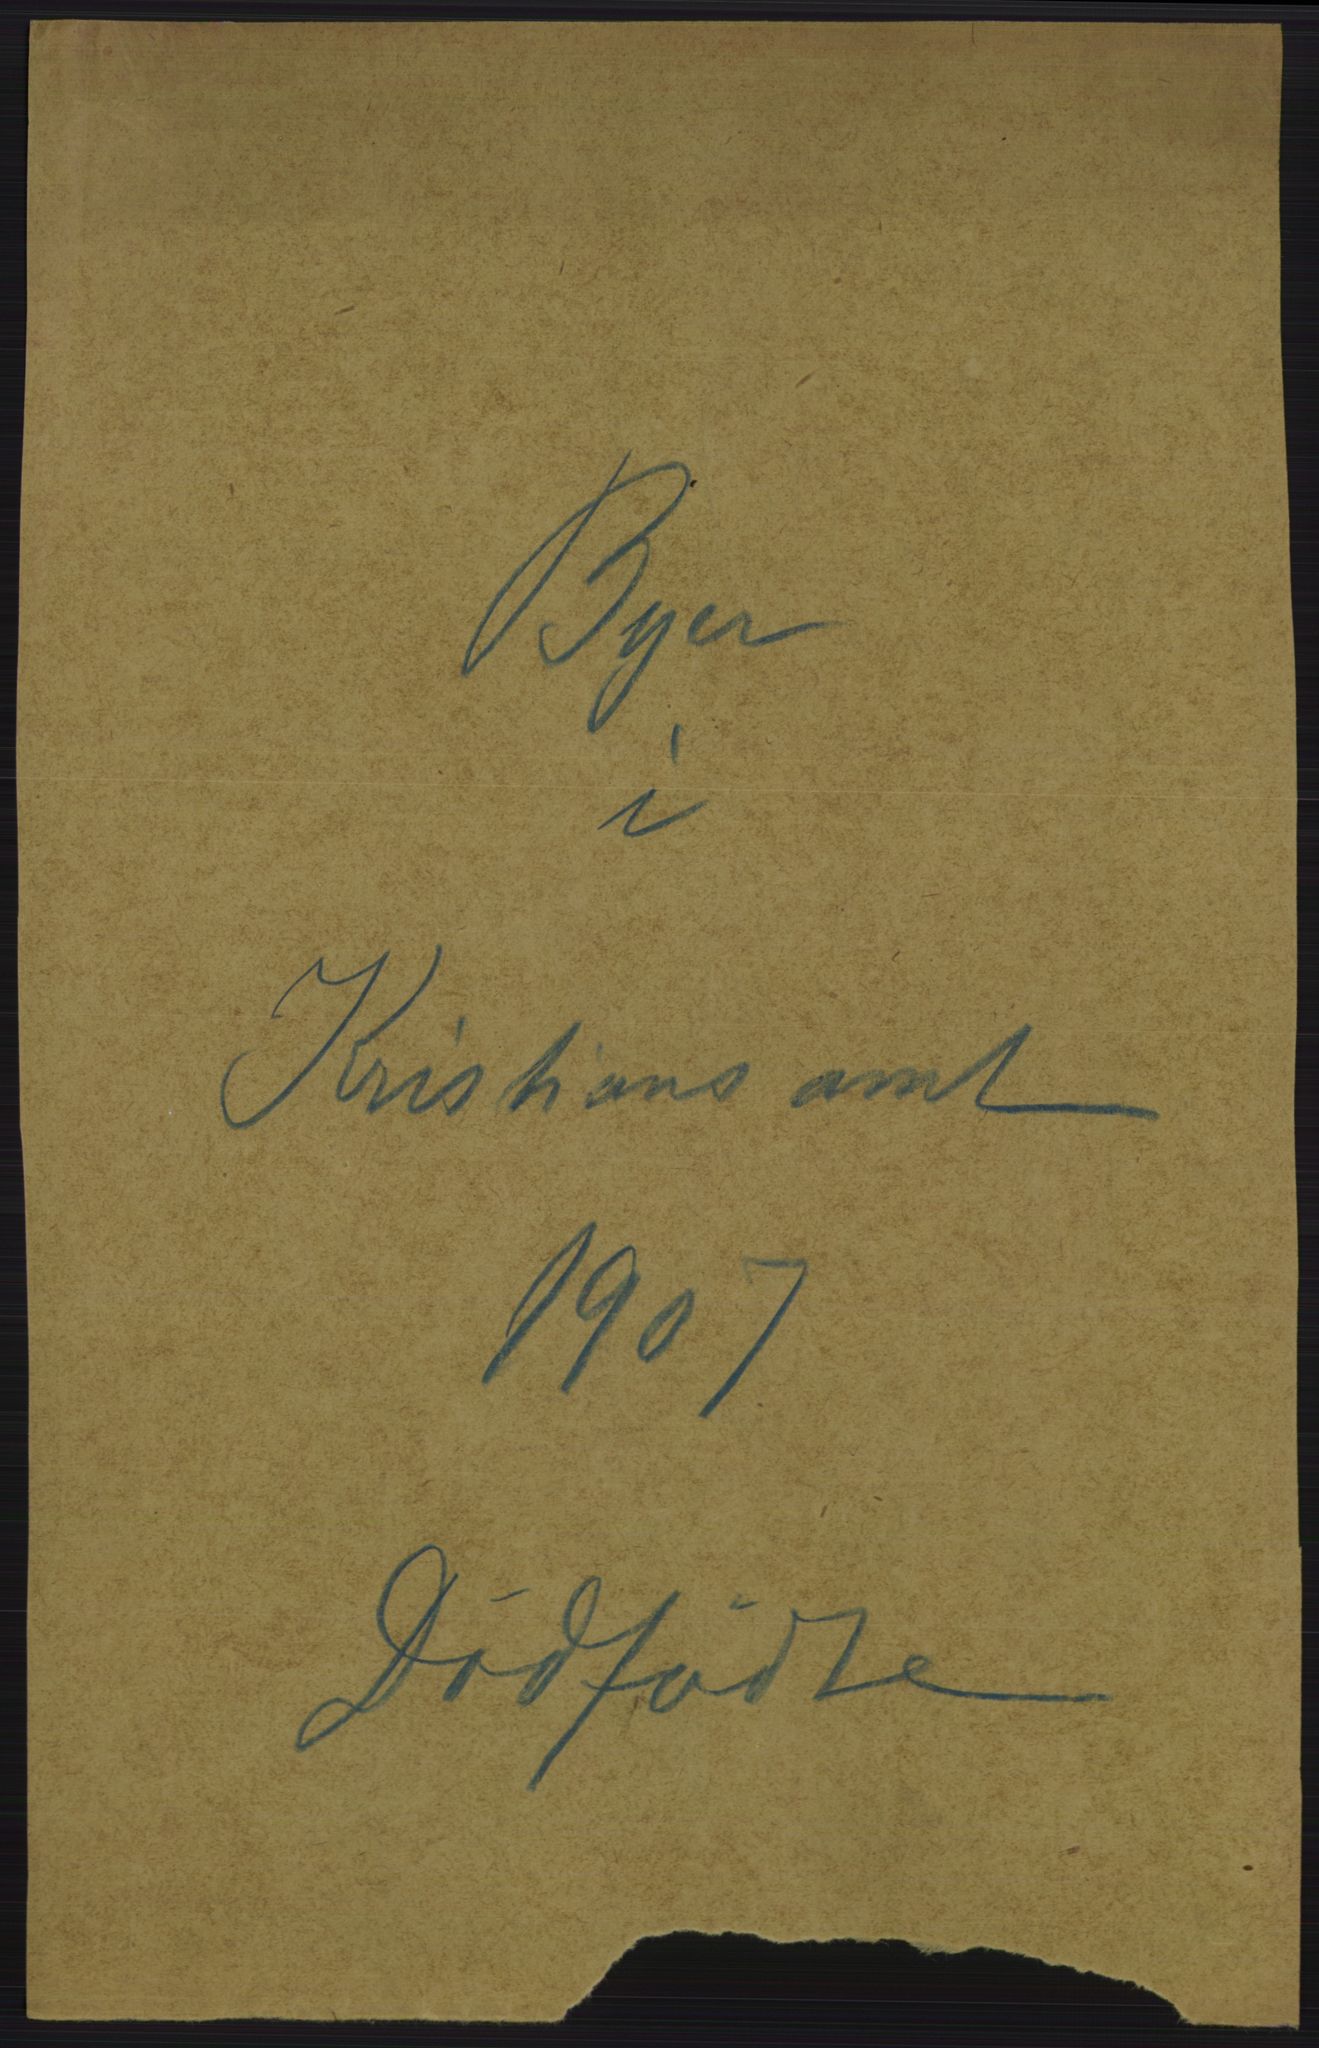 Byer
i
Kristians amt
1907
Dödfödte